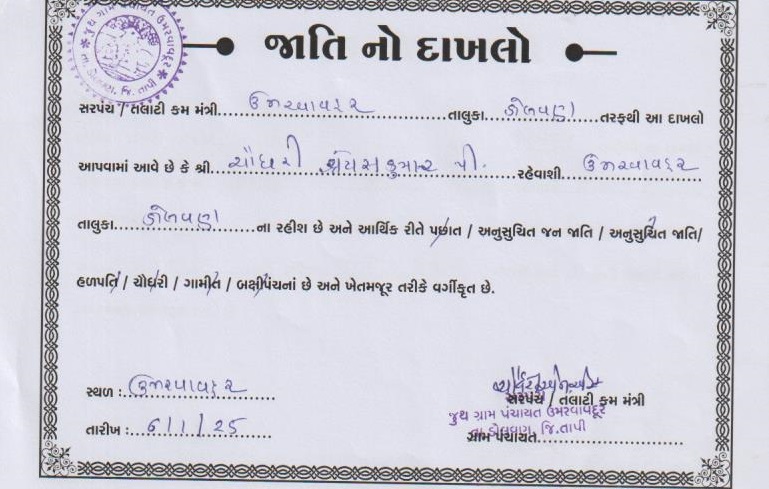 જાતિ નો દાખલો
સરપંચ / તલાટી કમ મંત્રી ઉમરવાવદુર તાલુકા ડોલવણ તરફથી આ દાખલો
આપવામાં આવે છે કે શ્રી ચૌધરી શ્રેયસકુમાર પી. રહેવાશી ઉમરવાવદુર
તાલુકા ડોલવણ ના રહીશ છે અને આર્થિક રીતે પછાત / અનુસુચિત જન જાતિ / અનુસુચિત જાતિ/
હળપતિ / ચૌધરી / ગામીત / બક્ષીપંચનાં છે અને ખેતમજૂર તરીકે વર્ગીકૃત છે.
સ્થળ : ઉમરવાવદુર
તારીખ : 6/1/25
સરપંચ / તલાટી કમ મંત્રી
સરપંચ
જુથ ગ્રામ પંચાયત ઉમરવાવદૂર
તા.ડોલવણ, જિ.તાપી
ગ્રામ પંચાયત